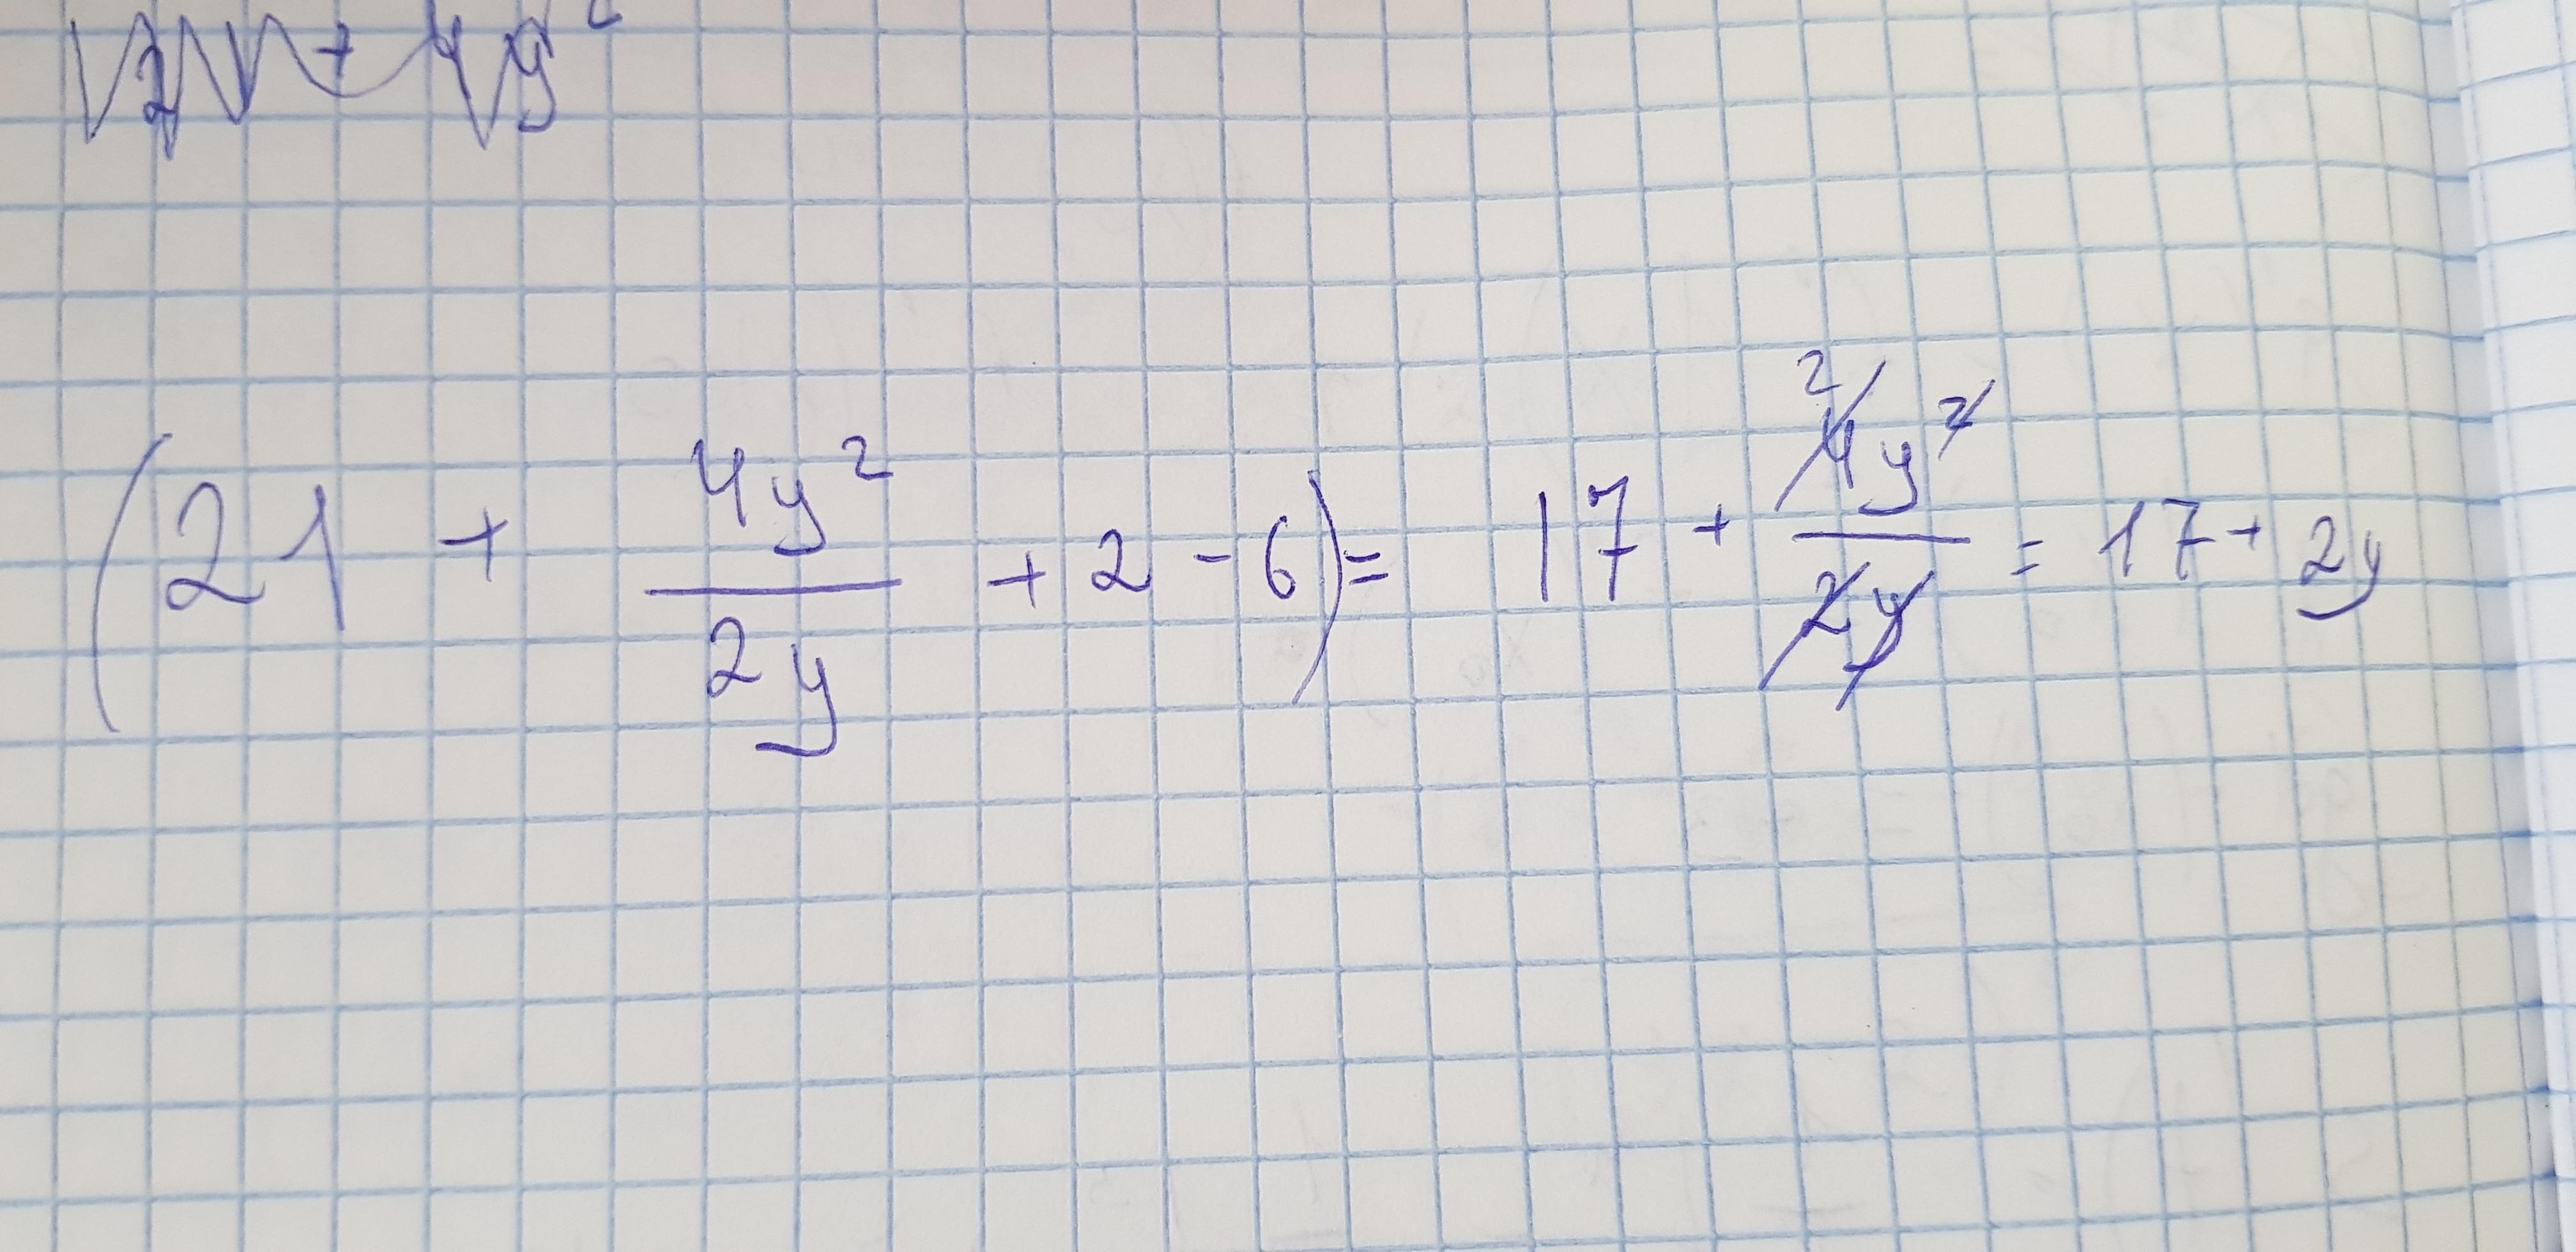 (21 + 4y²/2y + 2 - 6) = 17 + 4y²/2y = 17 + 2y